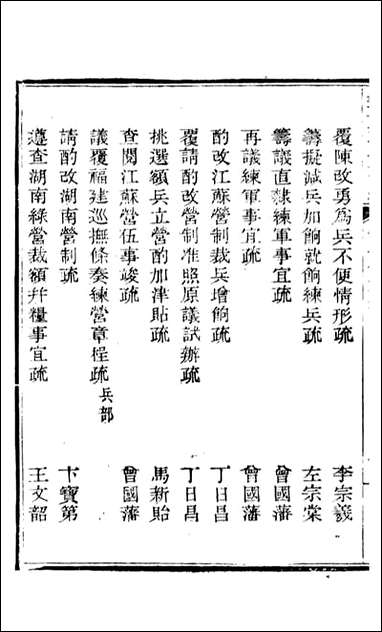 覆陳改勇為兵不便情形疏 李宗羲
籌擬減兵加餉就餉練兵疏 左宗棠
籌議直隸練軍事宜疏 曾國藩
再議練軍事宜疏 曾國藩
酌改江蘇營制裁兵增餉疏 丁日昌
覆請酌改營制准照原議試辦疏 丁日昌
挑選額兵立營酌加津貼疏 馬新貽
查閱江蘇營伍事竣疏 曾國藩
議覆福建巡撫條奏練營章程疏 兵部
請酌改湖南營制疏 卞寶第
遵查湖南綠營裁額并糧事宜疏 王文韶